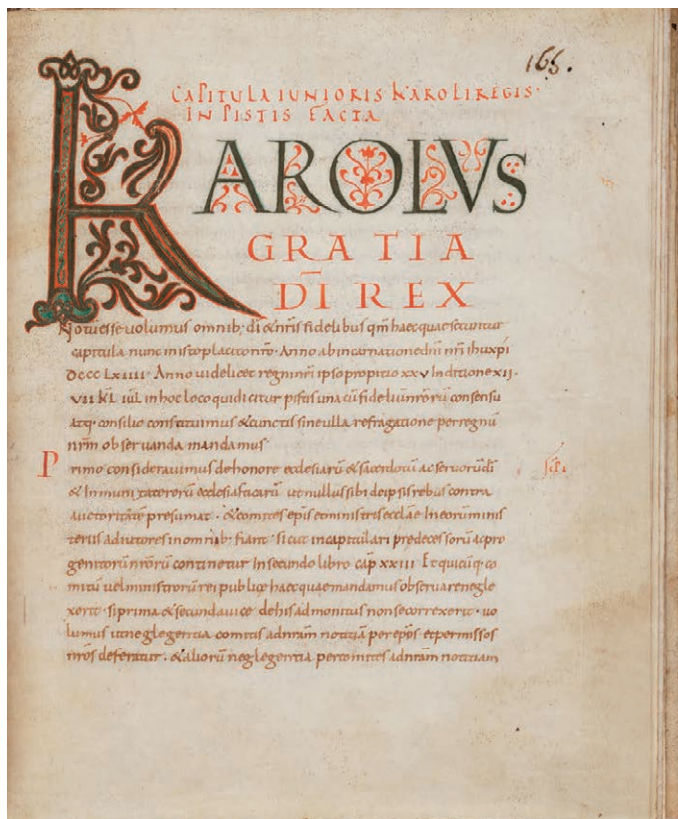 165.
CAPITULA IUNIORIS KAROLI REGIS·
IN PISTIS FACTA
KAROLVS
GRATIA
DĪ REX
Notū esse uolumus omnib; dī & nr̄is fidelibus qm̄ haec quae secuntur
capitula nunc in isto placito nr̄o· Anno ab incarnatione dn̄i nr̄i ihu xp̄i
DCCC LXIIII· Anno uidelicet regni nr̄i ipso propitio xxv Indictione xii·
VII KL IUL in hoc loco qui dicitur pistis una cū fideliū nr̄orū consensu
atq· consilio constituimus & cunctis sine ulla refragatione per regnū
nr̄m obseruanda mandamus·
Primo consideravimus de honore ecclesiarū & sacerdotū ac seruorū dī
& Inmunitate rerū ecclesiasticarū ut nullus sibi de ipsis rebus contra
auctoritatē presumat· & comites ep̄is et ministris eccl̄ae In eorū minis
teriis adiutores in omnib; fiant· sicut in capitulari predecessorū ac pro
genitorū nr̄orū continetur In secundo libro cap̄ xxiii Et quicūq· co
mitū uel ministrorū rei publicę haec quae mandamus obseruare negle
xerit· si prima & secunda uice de his admonitus non se correxerit· uo
lumus ut neglegentia comitis ad nr̄am notitiā per ep̄os et per missos
nr̄os deferatur· & aliorū neglegentia per comites ad nr̄am notitiam